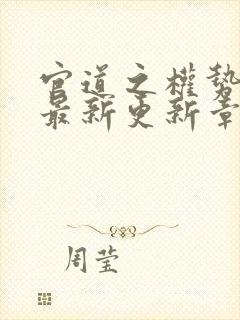 官道之權勢
最新更新章
周莹